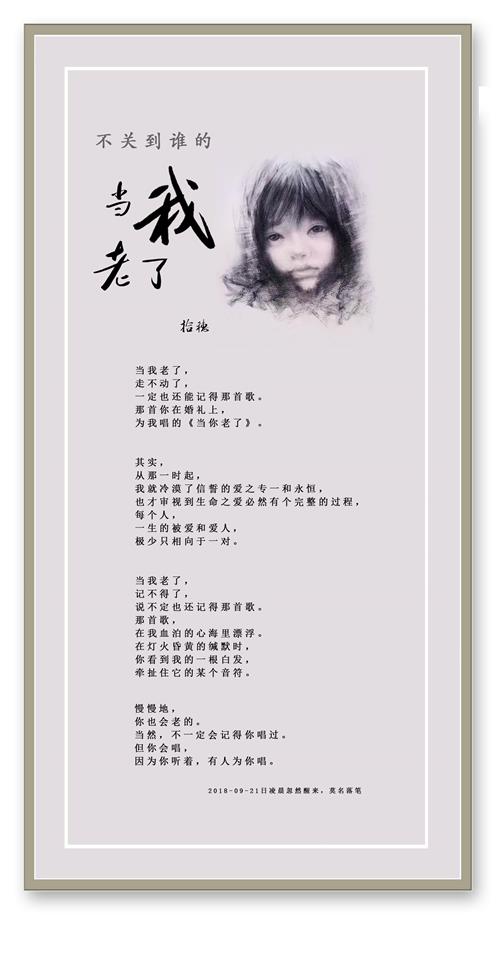 不关到谁的
当我
老了
拾穗
当我老了，
走不动了，
一定也还能记得那首歌。
那首你在婚礼上，
为我唱的《当你老了》。
其实，
从那一时起，
我就冷漠了信誓的爱之专一和永恒，
也才审视到生命之爱必然有个完整的过程，
每个人，
一生的被爱和爱人，
极少只相向于一对。
当我老了，
记不得了，
说不定也还记得那首歌。
那首歌，
在我血泊的心海里漂浮。
在灯火昏黄的缄默时，
你看到我的一根白发，
牵扯住它的某个音符。
慢慢地，
你也会老的。
当然，不一定会记得你唱过。
但你会唱，
因为你听着，有人为你唱。
2018-09-21日凌晨忽然醒来，莫名落笔